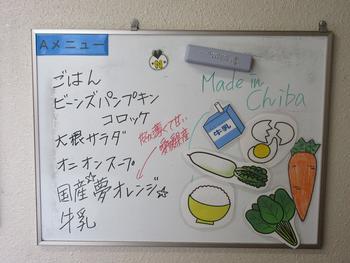 Aメニュー
ごはん
ビーンズパンプキン
コロッケ
大根サラダ
オニオンスープ
国産夢オレンジ☆
牛乳
皮が薄くて甘い
愛媛県産
Made in
Chiba
牛乳